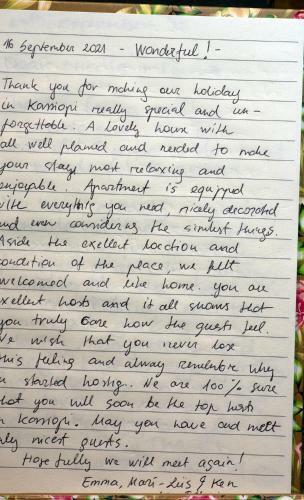 16 September 2021 - Wonderful! -
Thank you for making our holiday
in Kassiopi really special and un-
forgettable. A lovely home with
all well planed and needed to make
your stay most relaxing and
enjoyable. Apartment is equipped
with everything you need, nicely decorated
and even considering the simlest things.
Aside the exellent location and
condition of the place, we felt
welcomed and like home. You are
exellent hosts and it all shows that
you truly care how the guests feel.
We wish that you never lose
this feeling and alway remember why
u started hosting. We are 100% sure
that you will soon be the top hosts
in Kassiopi. May you have and meet
only nicest guests.
Hope fully we will meet again!
Emma, Mari-Leis & Ken